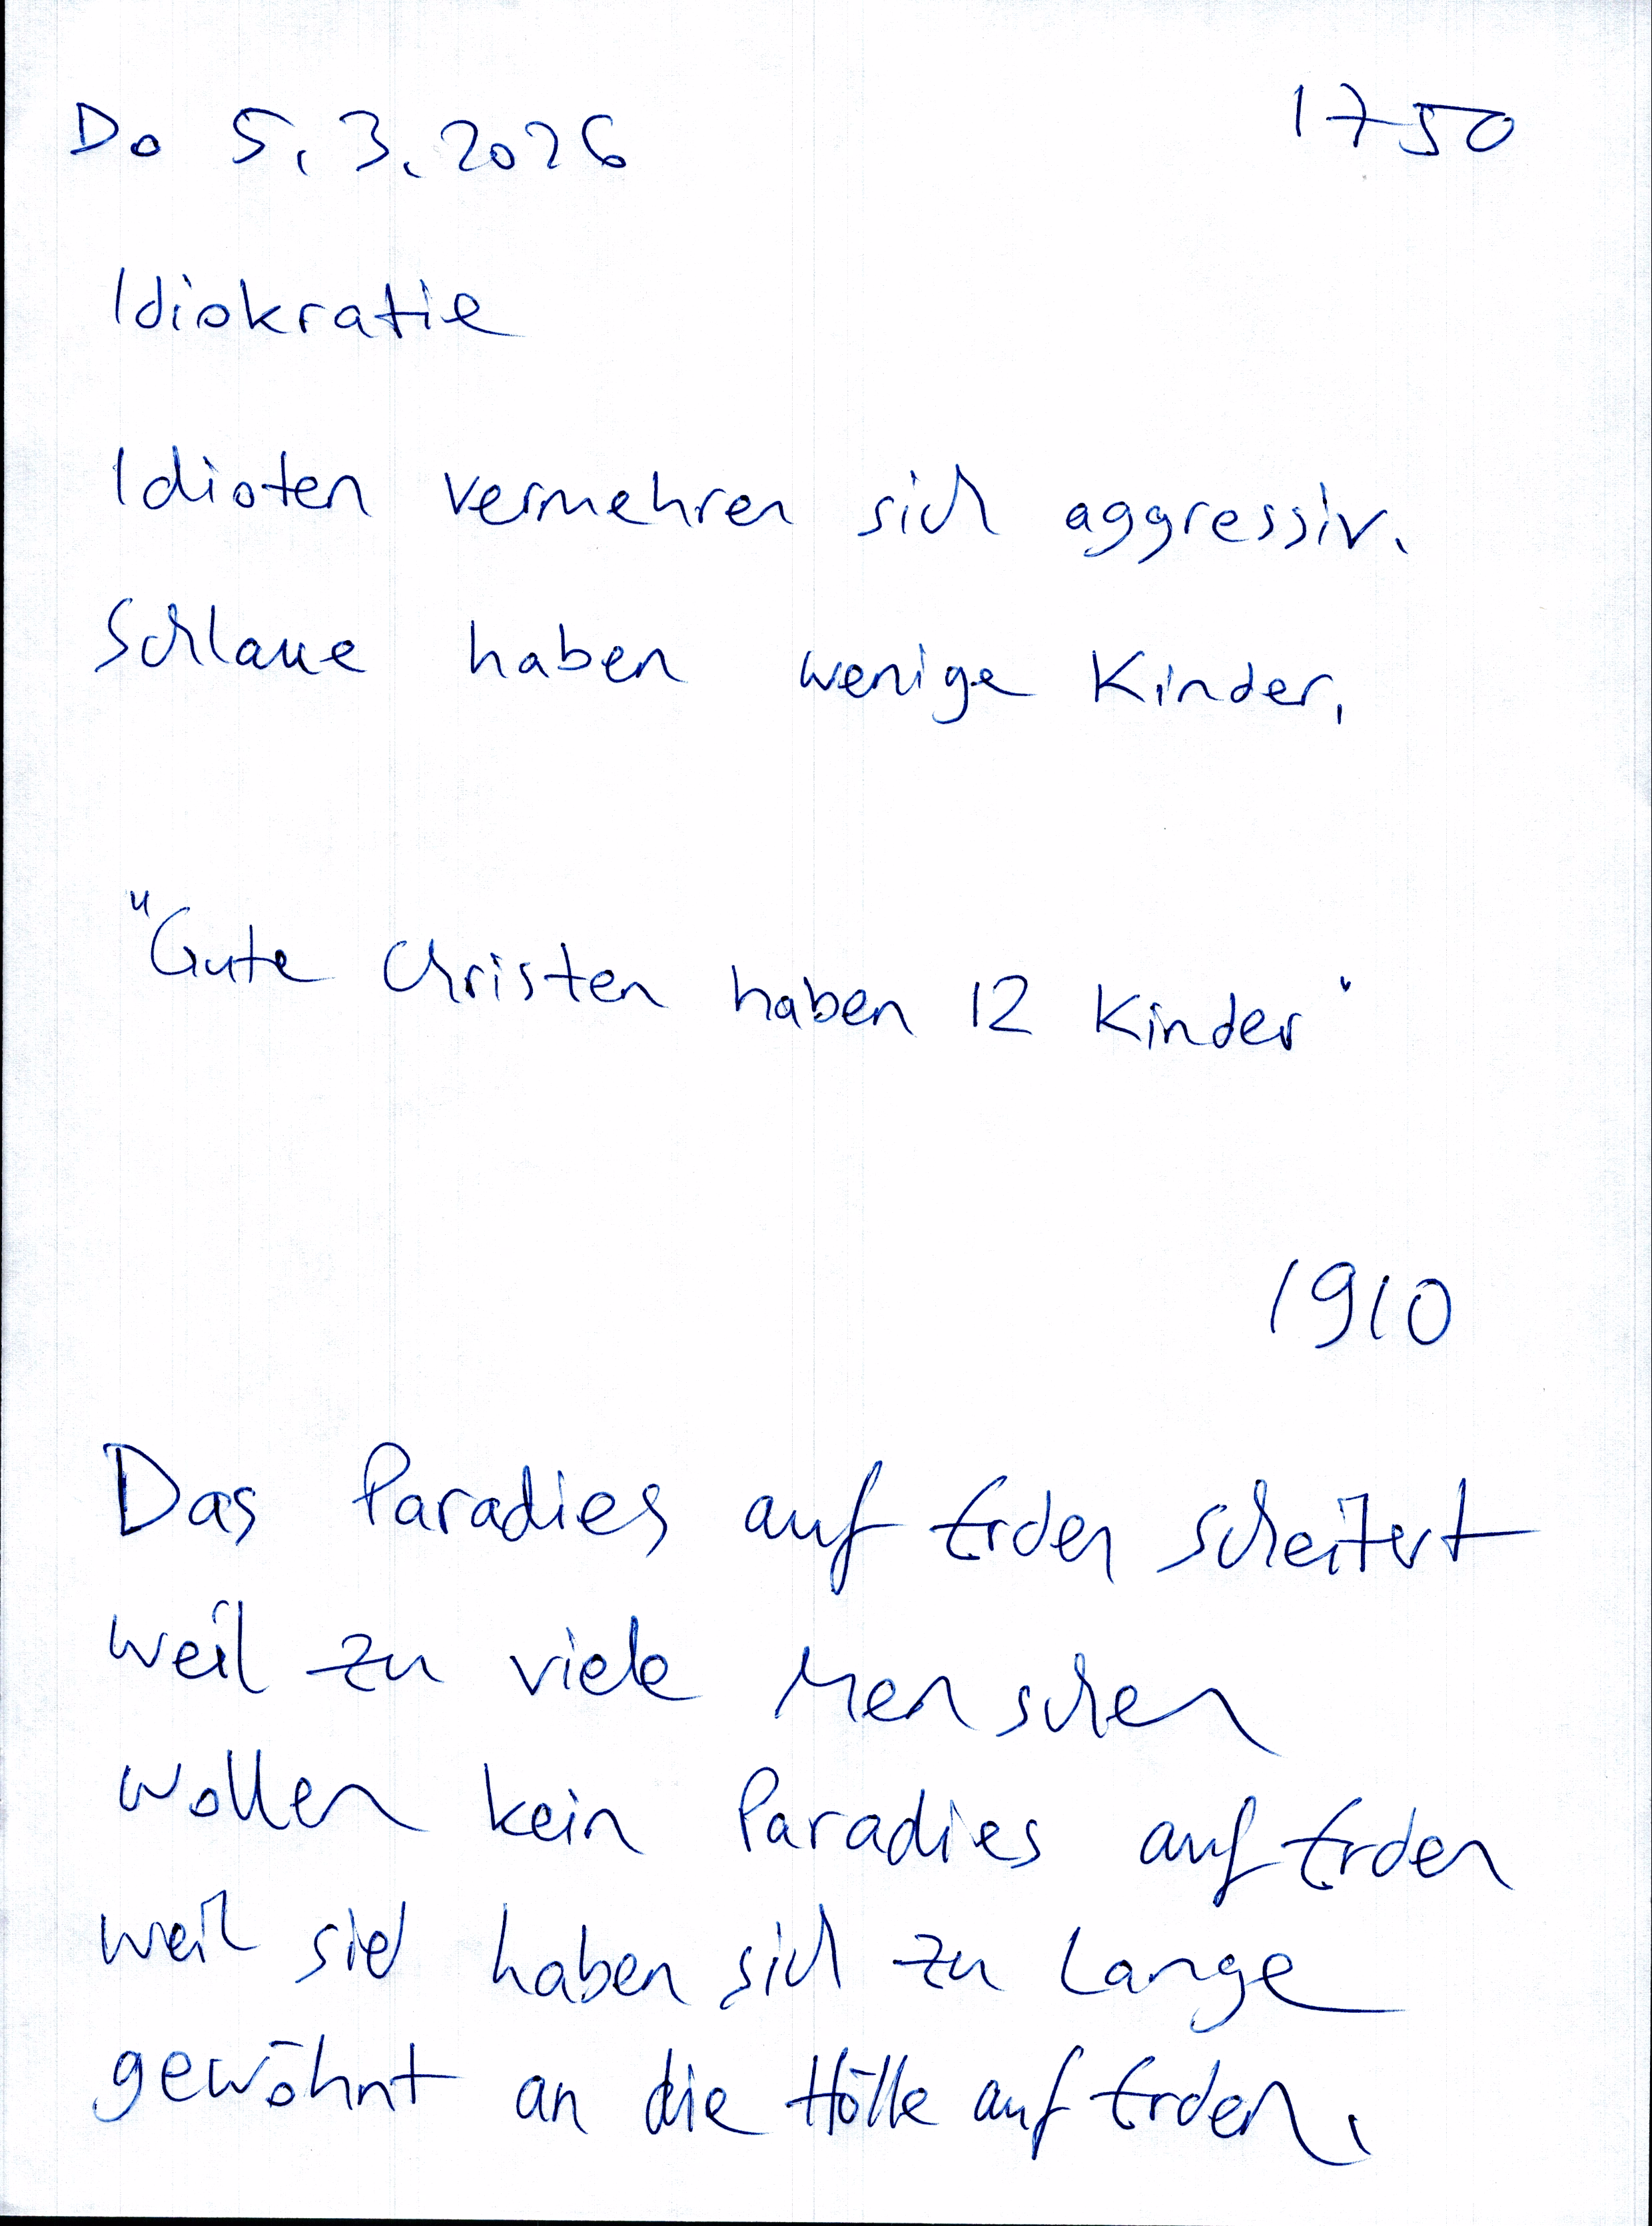 Do 5.3.2026 1750
Idiokratie
Idioten vermehren sich aggressiv.
Schlaue haben wenige Kinder.
"Gute Christen haben 12 Kinder"
1910
Das Paradies auf Erden scheitert
weil zu viele Menschen
wollen kein Paradies auf Erden
weil sie haben sich zu lange
gewöhnt an die Hölle auf Erden.